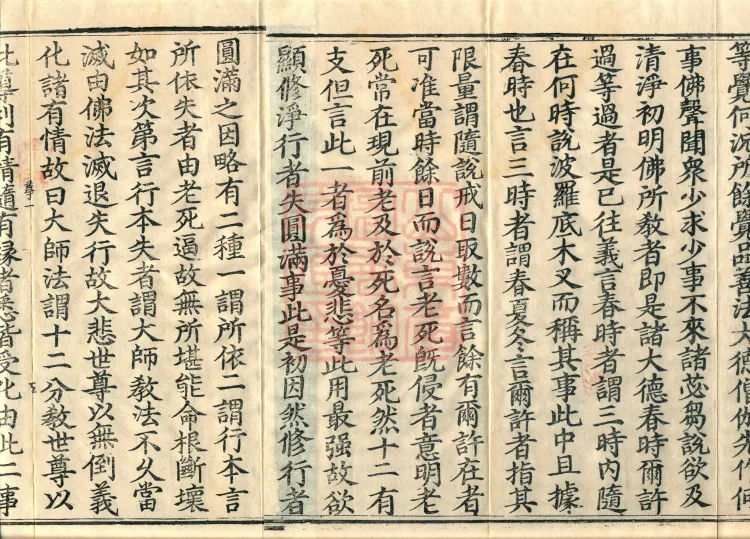 等覺何況所餘覺品善法大德
事佛聲聞衆少求少事不來諸苾芻說欲及
清淨初明佛所教者即是諸大德春時爾許
過等過者是已往義言春時者謂三時內隨
在何時說波羅底木叉而稱其事此中且據
春時也言三時者謂春夏冬言爾許者指其
限量謂隨說戒日取數而言餘有爾許在者
可准當時餘日而說言老死旣侵者意明老
死常在現前老及於死名爲老死然十二有
支但言此一者爲於憂悲等此用最强故欲
顯修淨行者失圓滿事此是初因然修行者
圓滿之因略有二種一謂所依二謂行本言
所依失者由老死逼故無所堪能命根斷壞
如其次第言行本失者謂大師教法不久當
滅由佛法滅退失行故大悲世尊以無倒義
化諸有情故曰大師法謂十二分教世尊以
此尊利有情隨有緣者悉皆受化由此二事